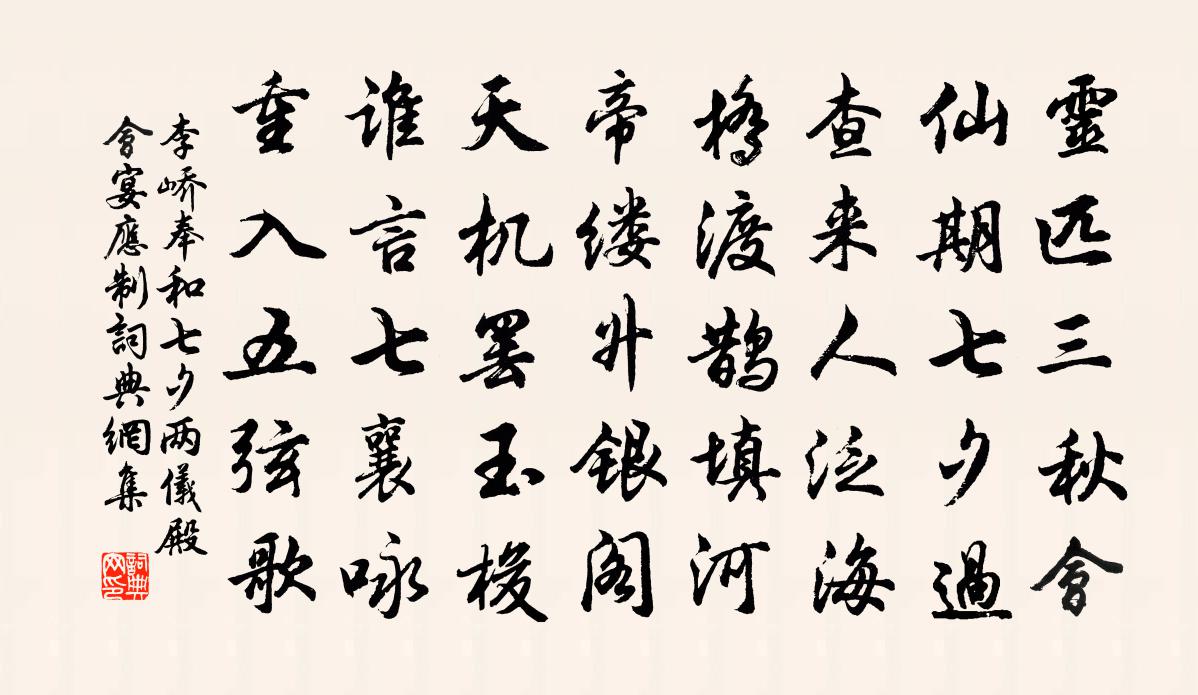 靈匹三秋會
仙期七夕過
查来人泛海
橋渡鹊填河
帝缕升銀阁
天机罢玉梭
谁言七襄咏
重入五弦歌
李峤奉和七夕两儀殿
會宴應制詞典網集
詞典